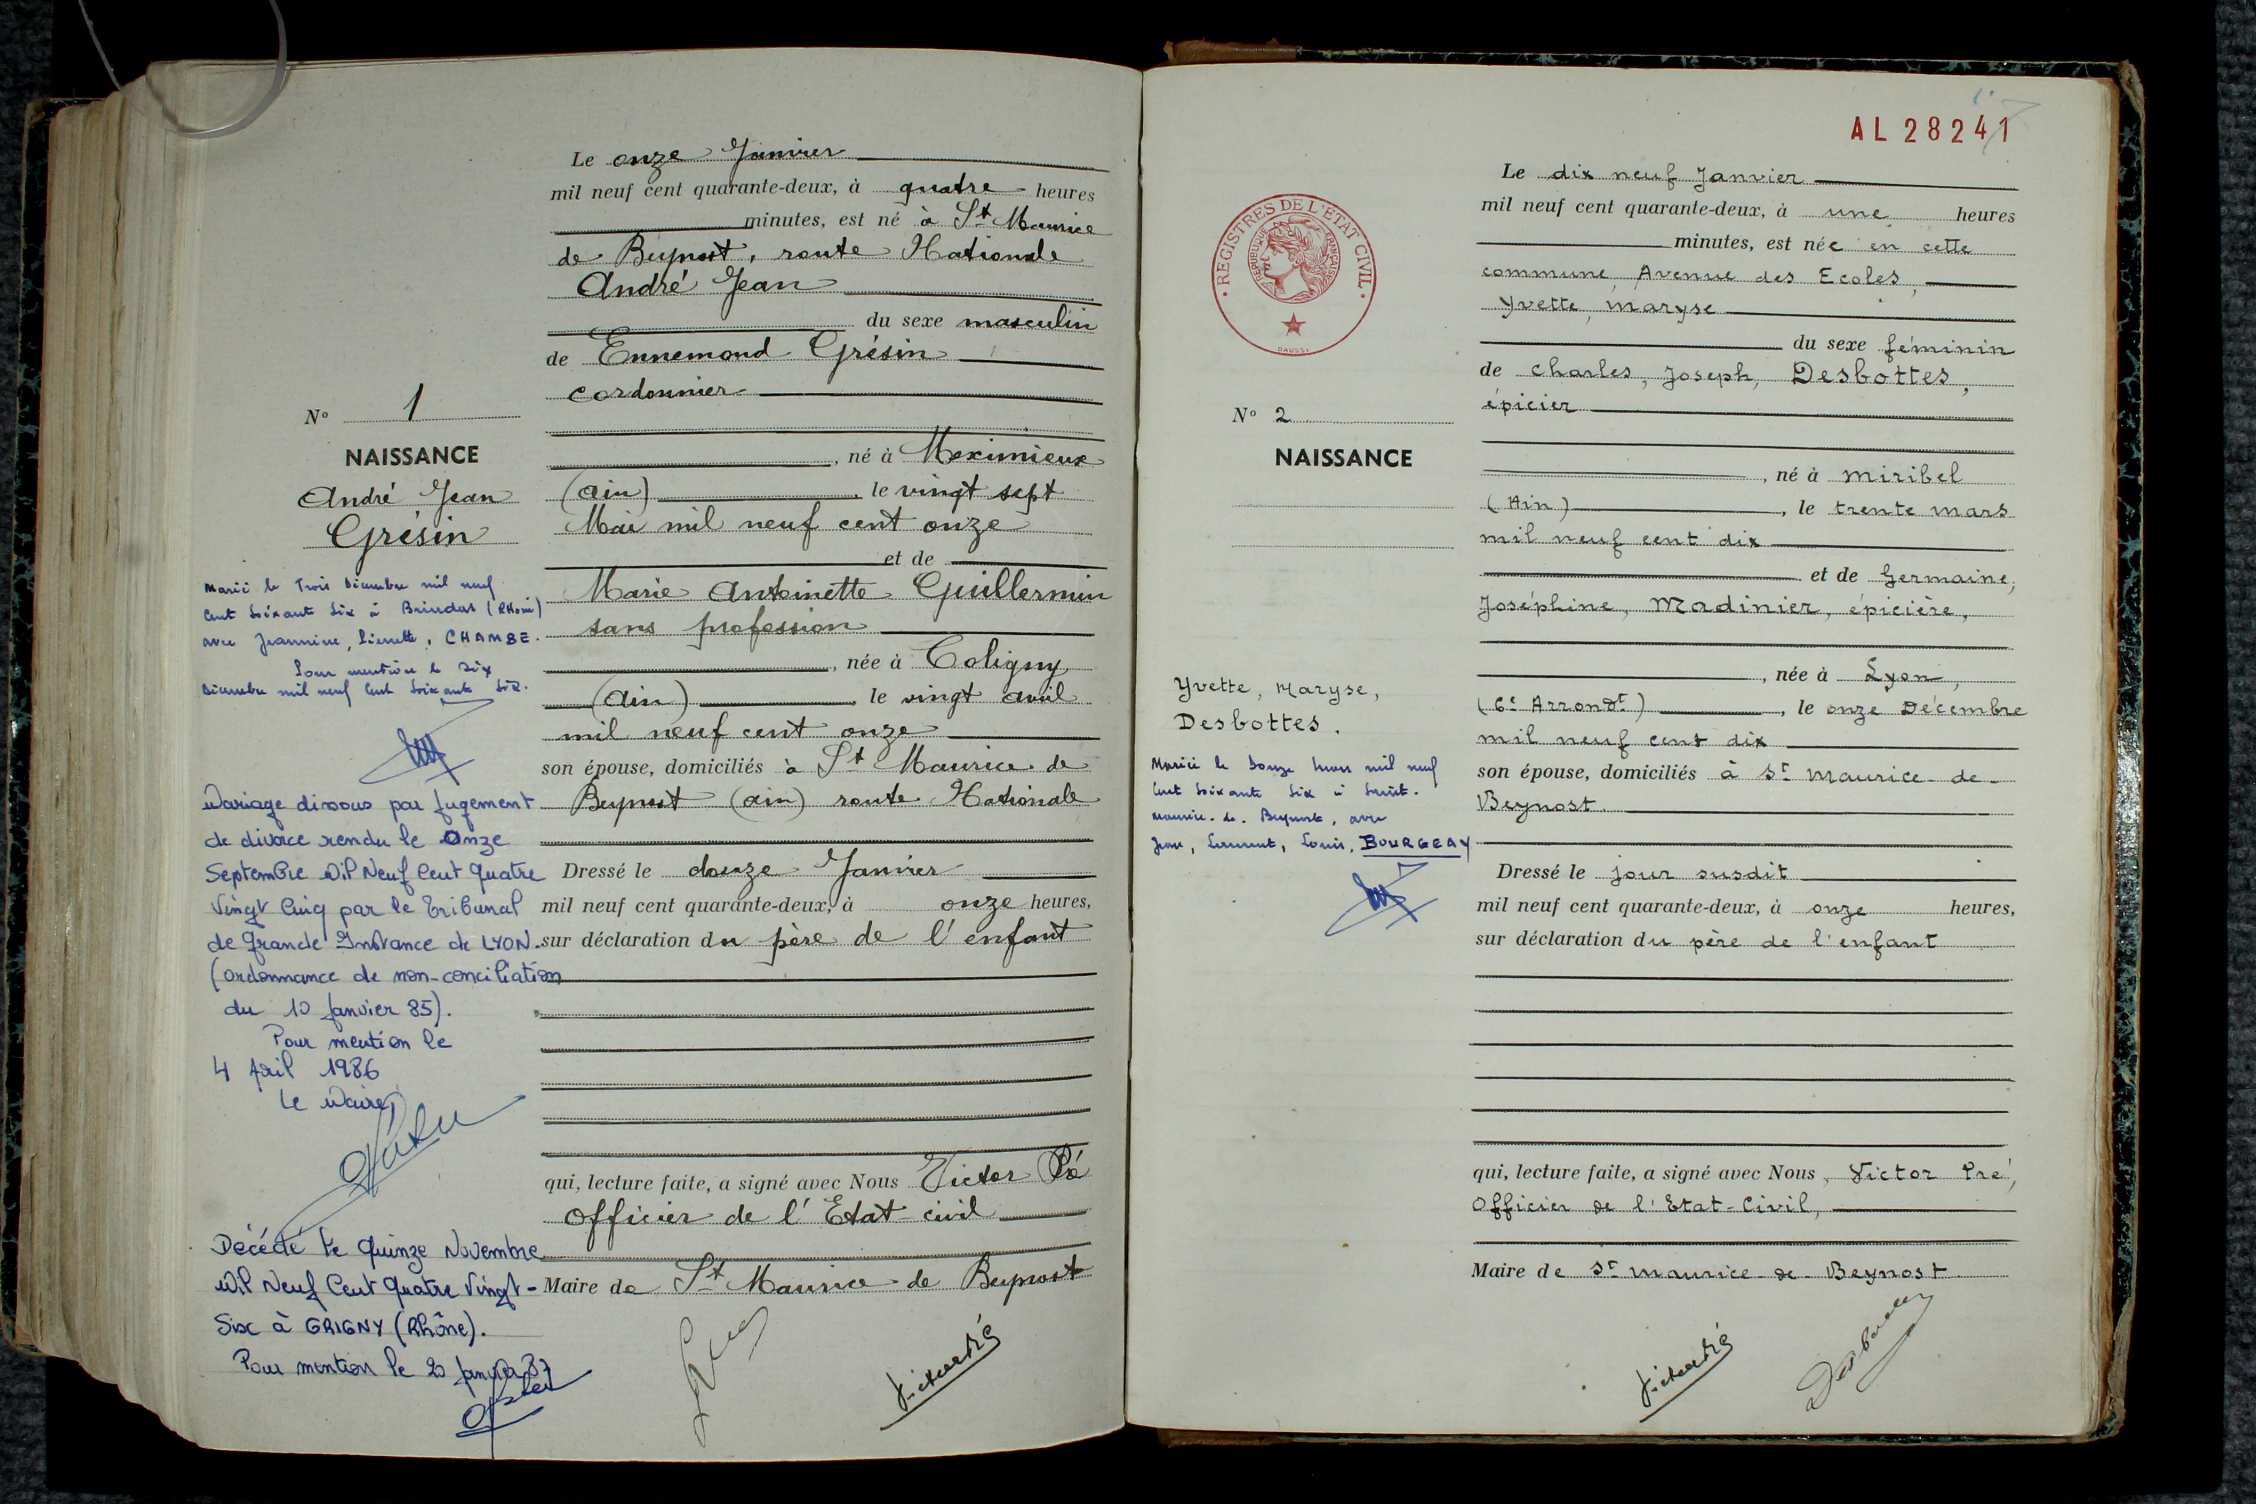 Le onze Janvier
mil neuf cent quarante-deux, à quatre heures
minutes, est né à St Maurice
de Beynost, route Nationale
André Jean
du sexe masculin
de Ennemond Grésin
cordonnier
, né à Meximieux
(ain) le vingt sept
Mai mil neuf cent onze
et de
Marie Antoinette Guillermin
sans profession
, née à Coligny
(ain) le vingt avril
mil neuf cent onze
son épouse, domiciliés à St Maurice de
Beynost (ain) route Nationale
Dressé le douze Janvier
mil neuf cent quarante-deux, à onze heures,
sur déclaration du père de l'enfant
qui, lecture faite, a signé avec Nous Victor Pré
Officier de l'Etat civil
Maire de St Maurice de Beynost
Victor Pré
No 1
NAISSANCE
André Jean
Grésin
Marié le Trois Décembre mil neuf
Cent soixante six à Brindas (Rhône)
avec Jeannine, Pierrette, CHAMBE.
Pour mention le Six
Décembre mil neuf Cent soixante six.
Mariage dissous par jugement
de divorce rendu le Onze
Septembre Mil Neuf Cent Quatre
Vingt Cinq par le Tribunal
de Grande Instance de LYON.
(ordonnance de non-conciliation
du 10 Janvier 85).
Pour mention le
4 Avril 1986
Le Maire,
Décédé le Quinze Novembre
Mil Neuf Cent Quatre Vingt-
Six à GRIGNY (Rhône).
Pour mention le 20 Janvier 87
AL 28241
REGISTRES DE L'ÉTAT CIVIL
RÉPUBLIQUE FRANÇAISE
DAUSSY
Le dix neuf Janvier
mil neuf cent quarante-deux, à une heures
minutes, est née en cette
commune, Avenue des Ecoles,
Yvette, Maryse
du sexe féminin
de Charles, Joseph, Desbottes,
épicier
, né à Miribel
(Ain), le trente mars
mil neuf cent dix
et de Germaine,
Joséphine, Madinier, épicière,
, née à Lyon,
(6e Arrondt), le onze Décembre
mil neuf cent dix
son épouse, domiciliés à St Maurice-de-
Beynost
Dressé le jour susdit
mil neuf cent quarante-deux, à onze heures,
sur déclaration du père de l'enfant
qui, lecture faite, a signé avec Nous, Victor Pré,
Officier de l'Etat-Civil,
Maire de St Maurice-de-Beynost
Victor Pré
No 2
NAISSANCE
Yvette, Maryse,
Desbottes.
Mariée le Douze Mars mil neuf
Cent soixante six à Saint-
Maurice-de-Beynost, avec
Jean, Laurent, Louis, BOURGEAY